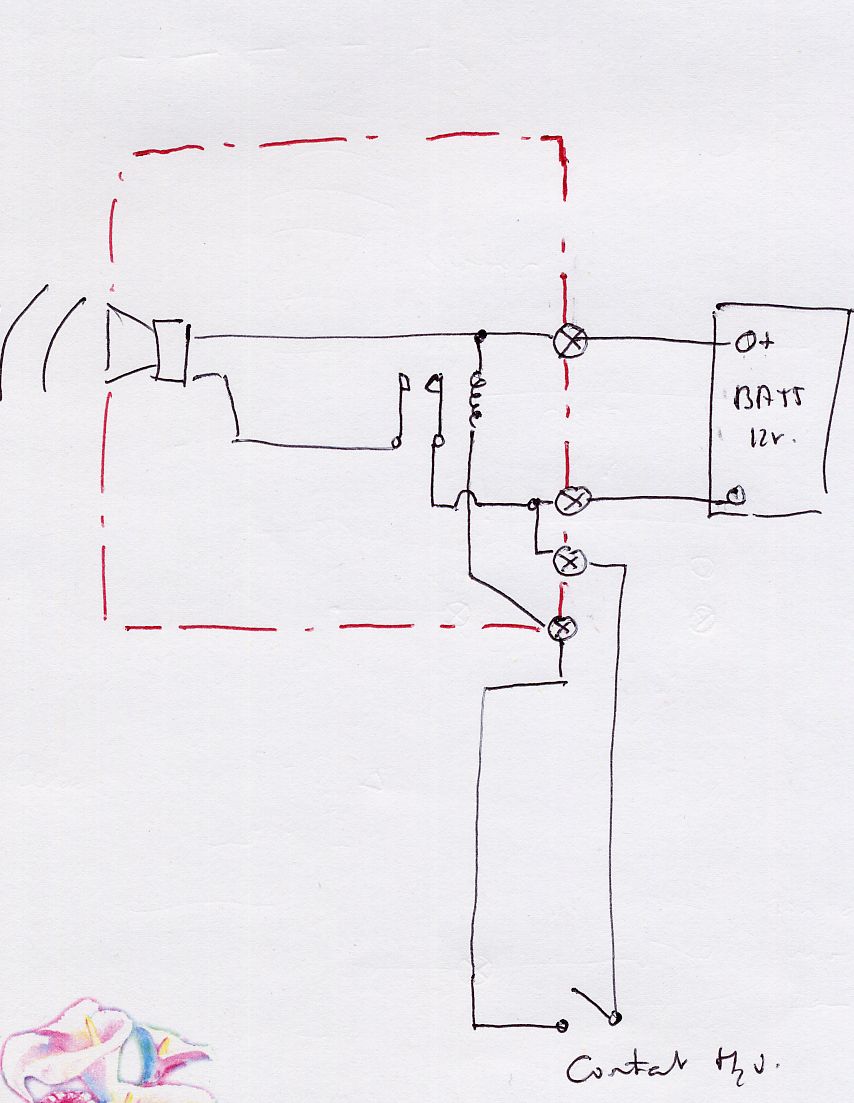 +
BATT
12v.
Contact H₂O.